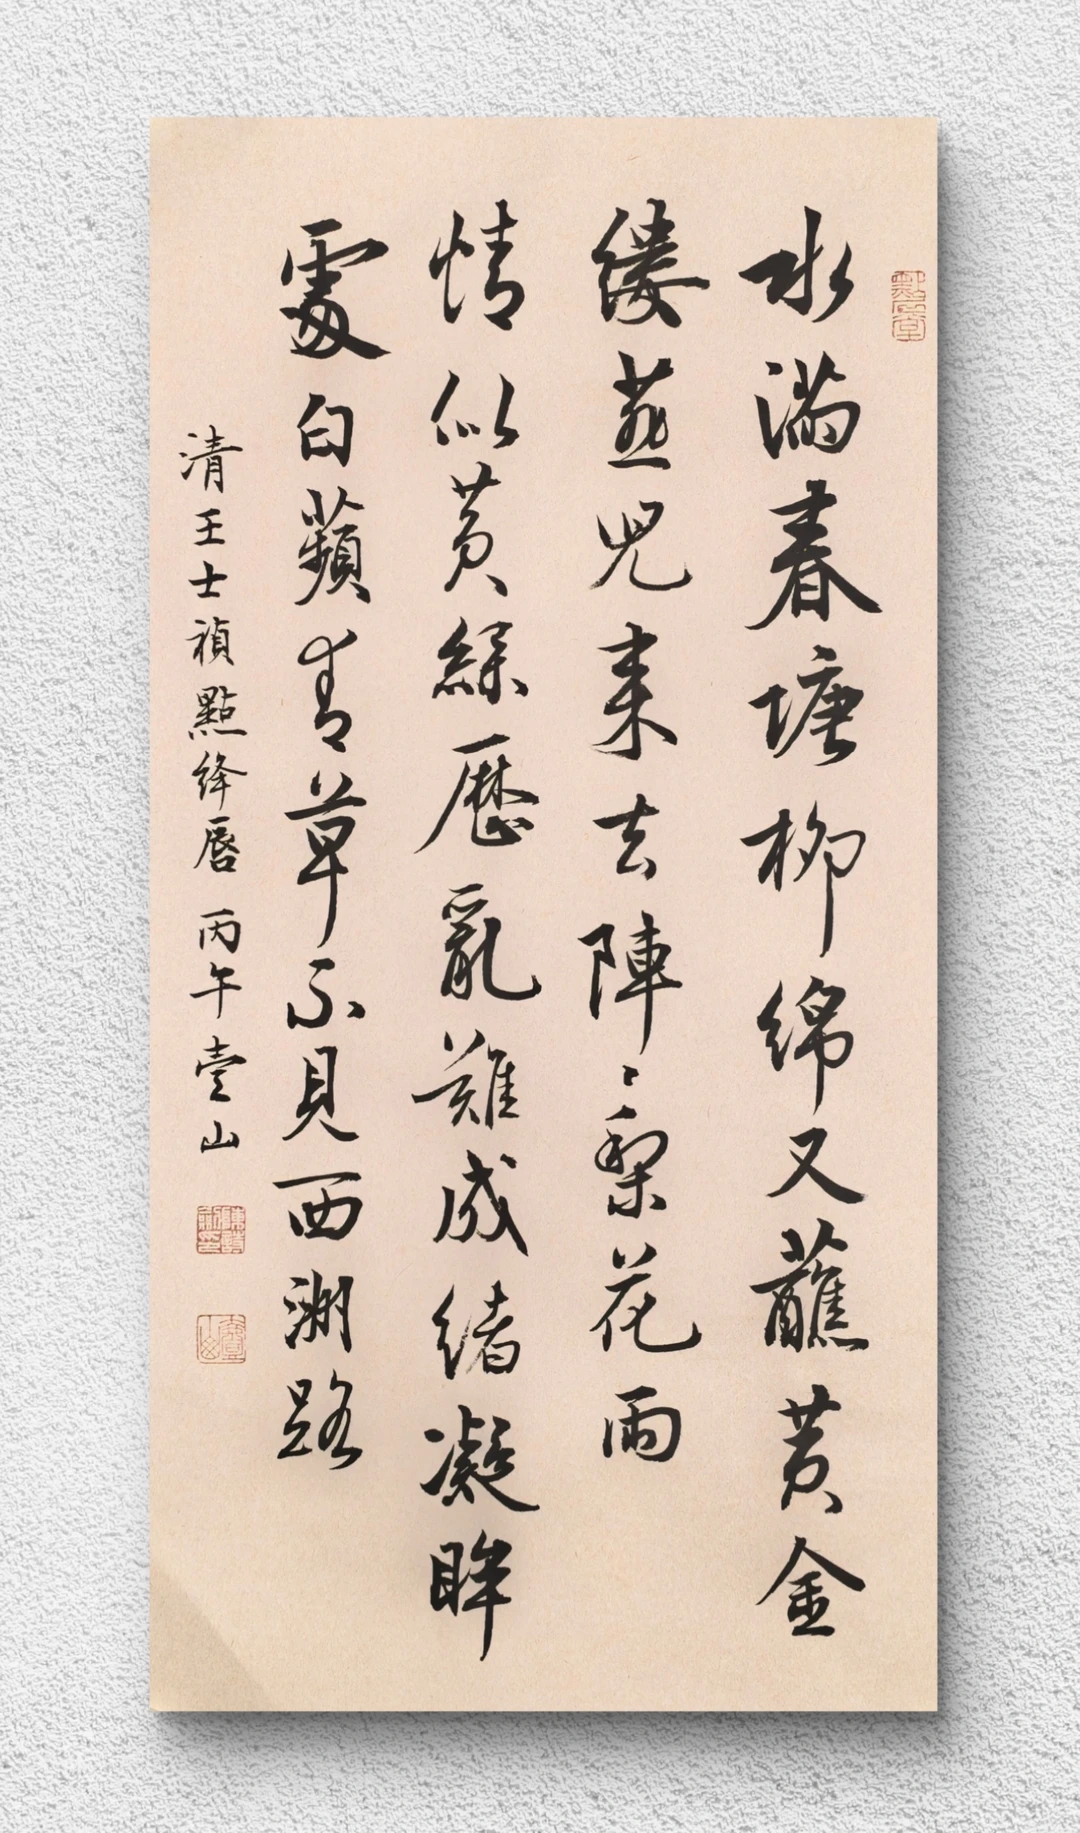 水滿春塘柳綿又蘸黃金
縷燕兒來去陣〻梨花雨
情似黃絲歷亂難成緒凝眸
處白蘋青草不見西湖路
清王士禎點絳唇 丙午壹山